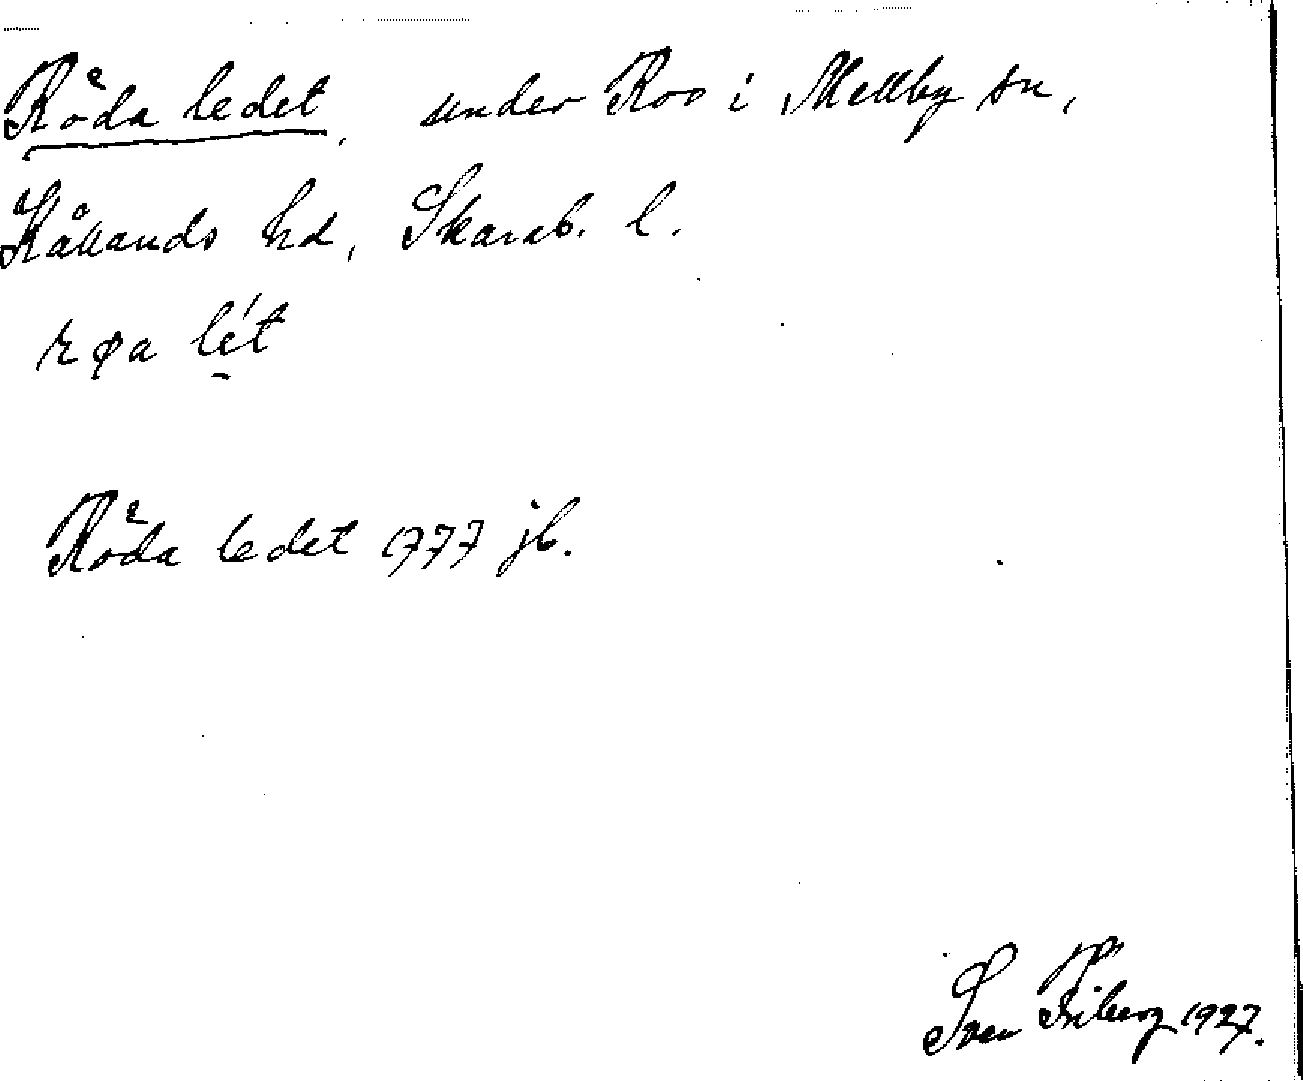 Röda ledet, under Roo i Mellby sn,
Kållands hd, Skarab. l.
røa lét
Röda ledet 1777 jb.
Sven Friberg 1927.